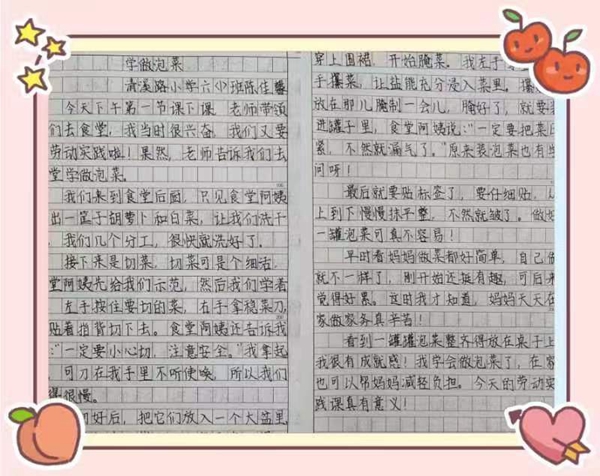 学做泡菜
清溪路小学六(1)班陈佳
今天下午第一节课下课,老师带领
们去食堂,我当时很兴奋,我们又要
劳动实践啦!果然,老师告诉我们去
堂学做泡菜。
我们来到食堂后厨,只见食堂阿姨
出一筐子胡萝卜和白菜,让我们洗干
,我们几个分工,很快就洗好了。
接下来是切菜。切菜可是个细活,
堂阿姨先给我们示范,然后我们学着
左手按住要切的菜,右手拿稳菜刀
贴着指背切下去。食堂阿姨还告诉我
:“一定要小心切,注意安全。”我拿起
可刀在我手里不听使唤,所以我们
得很慢。
切好后,把它们放入一个大盆里
穿上围裙,开始腌菜。我左手
手揉菜,让盐能充分浸入菜里。
放在那儿腌制一会儿,腌好了,就要
进罐子里,食堂阿姨说:“一定要把菜
紧,不然就漏气了。”原来装泡菜也有
问呀!
最后就要贴标签了,要仔细贴,
上到下慢慢抹平整,不然就皱了。做
一罐泡菜可真不容易!
平时看妈妈做菜都好简单,自己
就不一样了,刚开始还挺有趣,可后来
觉得好累。这时我才知道,妈妈天天在
家做家务真辛苦!
看到一罐罐泡菜整齐得放在桌子上
我很有成就感!我学会做泡菜了,在家
也可以帮妈妈减轻负担。今天的劳动实
践课真有意义!